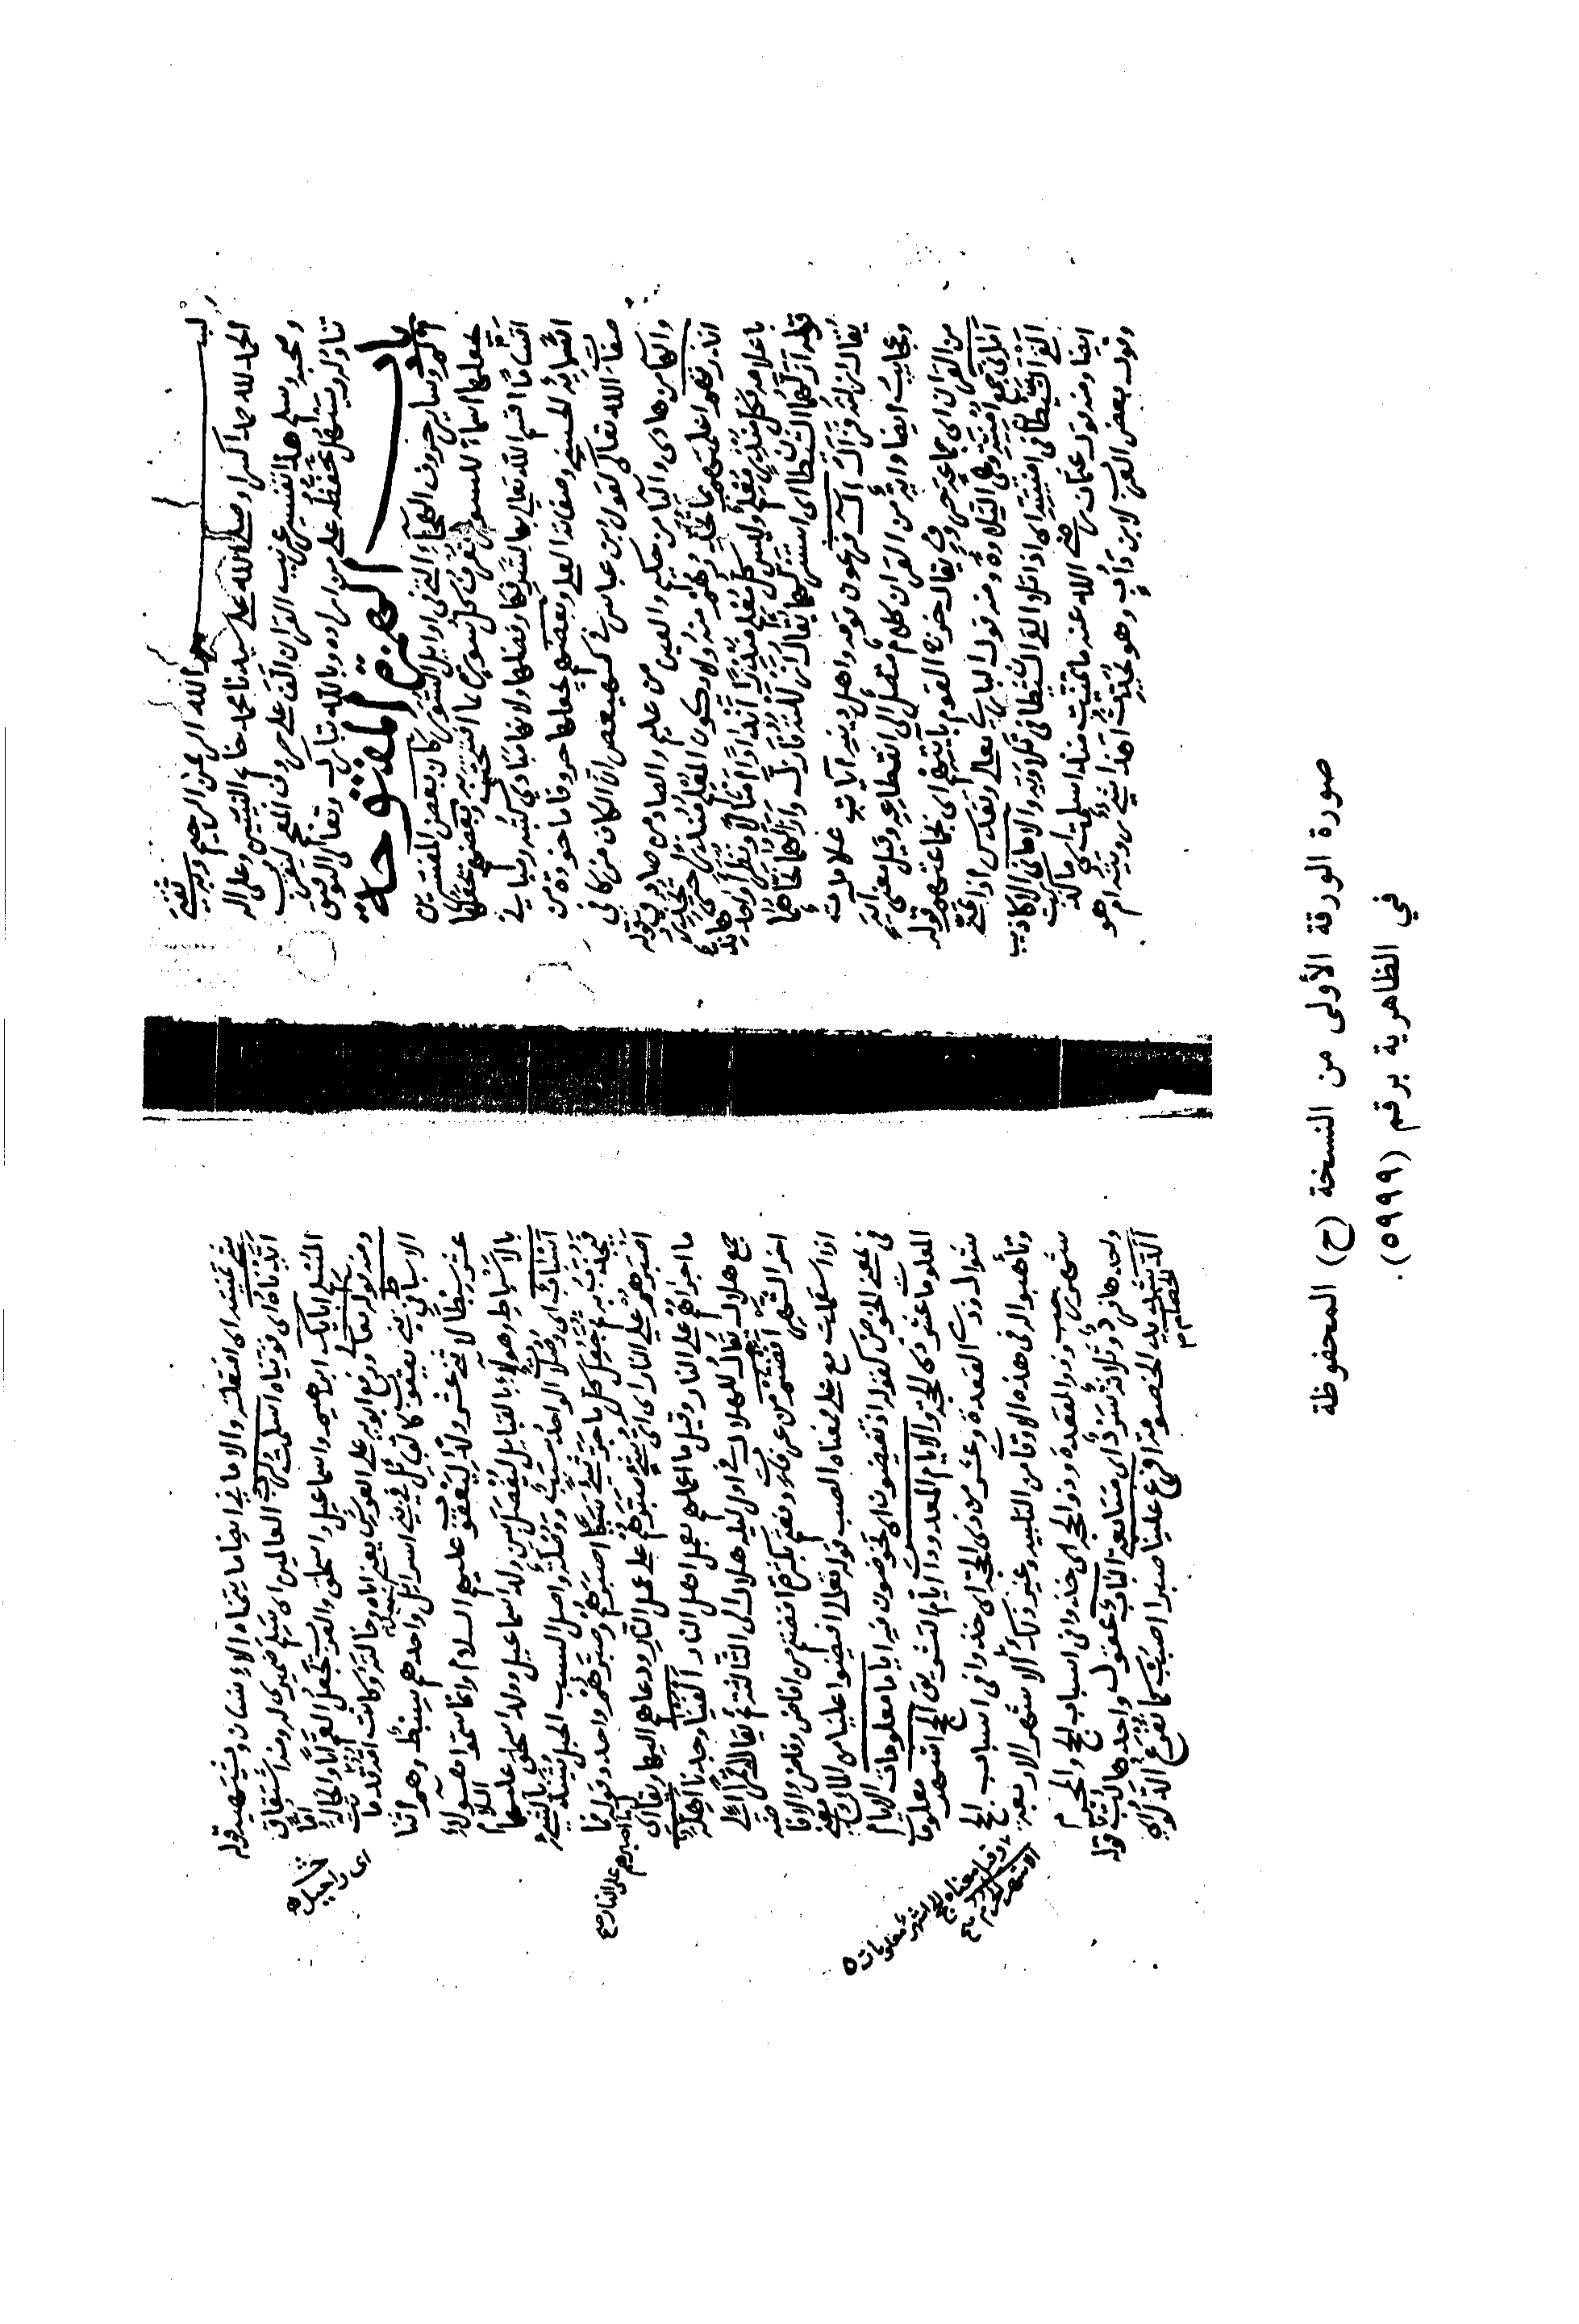 بسم الله الرحمن الرحيم وبه ثقتي
الحمد لله حمدا كثيرا وصلى الله على سيدنا محمد خاتم النبيين وعلى اله
وصحبه وسلم هذا تفسير غريب القران الف على حروف المعجم ليقرب
تناوله ويسهل تحفظه على من اراده وبالله تبارك وتعالى التوفيق
باب الهمزة المفتوحة
الم وساير حروف الهجاء التي في اوايل السور كان بعض المفسرين
يجعلها اسماء للسور تعرف كل سورة بما افتتحت به وبعضهم يجعلها
اقساما اقسم الله تعالى بها لشرفها وفضلها ولانها مبادي كتبه ومباني
اسمائه الحسنى وصفاته العلى وبعضهم يجعلها حروفا ماخوذة من
صفات الله تعالى كقول ابن عباس في كهيعص ان الكاف من كافي
والها من هادي واليا من حكيم والعين من عليم والصاد من صادق قوله
اانذرتهم اعلمتهم بما تحذرهم منه ولا يكون المعلم منذرا حتى يحذر
باعلامه فكل منذر معلم وليس كل معلم منذرا اندادا امثالا ونظرا واحدهم ند
قوله ازلهما الشيطان اي استزلهما يقال ازللته فزل وازالهما نحاهما
يقال ازلته فزال آل فرعون قومه واهل دينه آيات علامات
وعجايب ايضا واية من القران كلام متصل الى انقطاعه وقيل معنى آية
من القران اي جماعة حروف يقال خرج القوم بآيتهم اي بجماعتهم قوله
اماني جمع امنية وهي التلاوة ومنه قول الباري تعالى وتقدس اذا تمنى
القى الشيطان في امنيته اي اذا تلا القى الشيطان في تلاوته والاماني الاكاذيب
ايضا ومنه قول عثمان رضي الله عنه ما تمنيت منذ اسلمت اي ما كذبت
وقول بعض العرب لابن داب وهو يحدث اهذا شيء رويته ام هو
شيء تمنيته اي افتعلته والاماني ايضا ما يتمناه الانسان ويشتهيه قوله
ايدناه اي قويناه اسلمت لرب العالمين اي سلم ضميري له ومنه اشتقاق
المسلم ابايك ابراهيم واسماعيل واسحق والعرب تجعل العم ابا والخالة اما
ومنه قوله تعالى ورفع ابويه على العرش يعني اباه وخالته وكانت امه قد ماتت
الاسباط في بني يعقوب كالقبايل في بني اسماعيل واحدهم سبط وهم اثنا
عشر سبطا لاثني عشر ولدا ليعقوب عليهم السلام وانما سموا هؤلاء
بالاسباط وهؤلاء بالقبايل ليفصل بين ولد اسماعيل وولد اسحق عليهما السلام
اسباب اي وصلا الواحد سبب ووصلة واصل السبب الحبل يشد بالشيء
فيجذب به ثم جعل كل ما جر شيئا سببا اصبرهم وصبرهم واحد وقوله فما
اصبرهم على النار اي اي شيء صبرهم على عمل النار ودعاهم اليها ويقال
ما اجراهم على النار وقيل ما اعملهم بعمل اهل النار الفينا وجدنا اهلة
جمع هلال يقال للهلال في اول ليلة هلال الى الثالثة ثم يقال القمر الى
اخر الشهر افضتم من عرفات دفعتم بكثرة
اذا استعملت مع على معناه الصب قوله تعالى افيضوا علينا من الماء
في معنى الخوض كقوله اذ تفيضون اي تخوضون فيه اياما معلومات الايام
المعلومات عشر ذي الحجة والايام المعدودات ايام التشريق الحج اشهر معلومات
شوال وذو القعدة وعشر من ذي الحجة اي خذوا في اسباب الحج
وتأهبوا له في هذه الاوقات من التلبية وغير ذلك الاشهر الاربعة
شهور رجب وذو القعدة وذو الحجة
الد شديد الخصومة افرغ علينا صبرا اصبب كما تفرغ الدلو
صورة الورقة الأولى من النسخة (ح) المحفوظة
في الظاهرية برقم (٥٩٩٩).